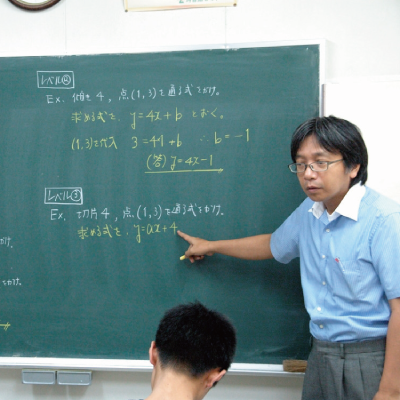 レベル②
Ex. 傾き4, 点(1,3)を通る式をかけ。
求める式を、y=4x+b とおく。
(1,3)を代入 3=4・1+b ∴b=-1
(答) y=4x-1
レベル③
Ex. 切片4, 点(1,3)を通る式をかけ。
求める式を、y=ax+4